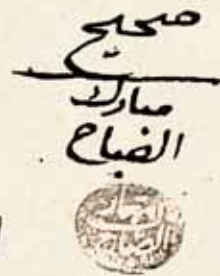 صحيح
مبارك
الصباح